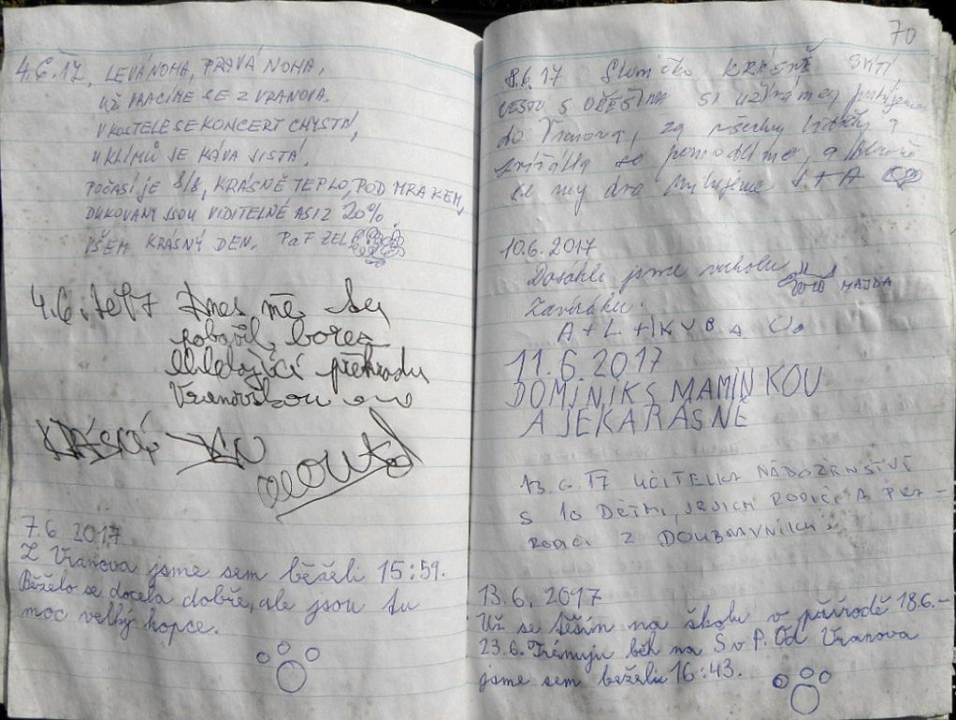 4.6.17. LEVÁ NOHA, PRAVÁ NOHA,
UŽ VRACÍME SE Z VRANOVA.
V KOSTELE SE KONCERT CHYSTÁ,
U KLÍMŮ JE KÁVA JISTÁ.
POČASÍ JE 8/8, KRÁSNĚ TEPLO, POD MRAKEM,
DUKOVANY JSOU VIDITELNÉ ASI Z 20%.
VŠEM KRÁSNÝ DEN. PaF ZEL
4.6. Dnes mě
pobavil borec
hledající přehradu
Vranovskou
KRÁSNÝ DEN
7.6 2017
Z Vranova jsme sem běželi 15:59.
Běželo se docela dobře, ale jsou tu
moc velký kopce.
70
8.6.17 Sluníčko KRÁSNĚ SVÍTÍ,
CESTU S si užíváme,
do Vranova, za všechny lidičky a
zvířátka se pomodlíme, a
se my dva milujeme J+A
10.6.2017
Dosáhli jsme vrcholu
MAJDA
Závrátku.
A + L + K V B a
11.6.2017
DOMINIK S MAMINKOU
A JEKARÁSNĚ
13.6.17 UČITELKA NÁBOŽENSTVÍ
S 10 DĚTMI, JEJICH RODIČE A PRA-
RODIČI Z DOUBRAVNÍKU.
13.6. 2017
Už se těším na školu v přírodě 18.6.-
23.6. Trénuju běh na ŠvP. Od Vranova
jsme sem běželi 16:43.